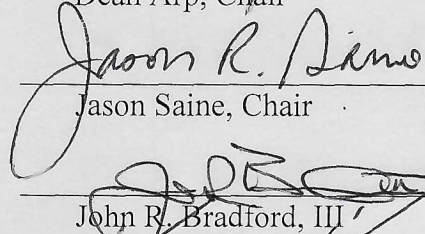 Dean Arp, Chair
Jason R. Saine
Jason Saine, Chair
John R. Bradford, III